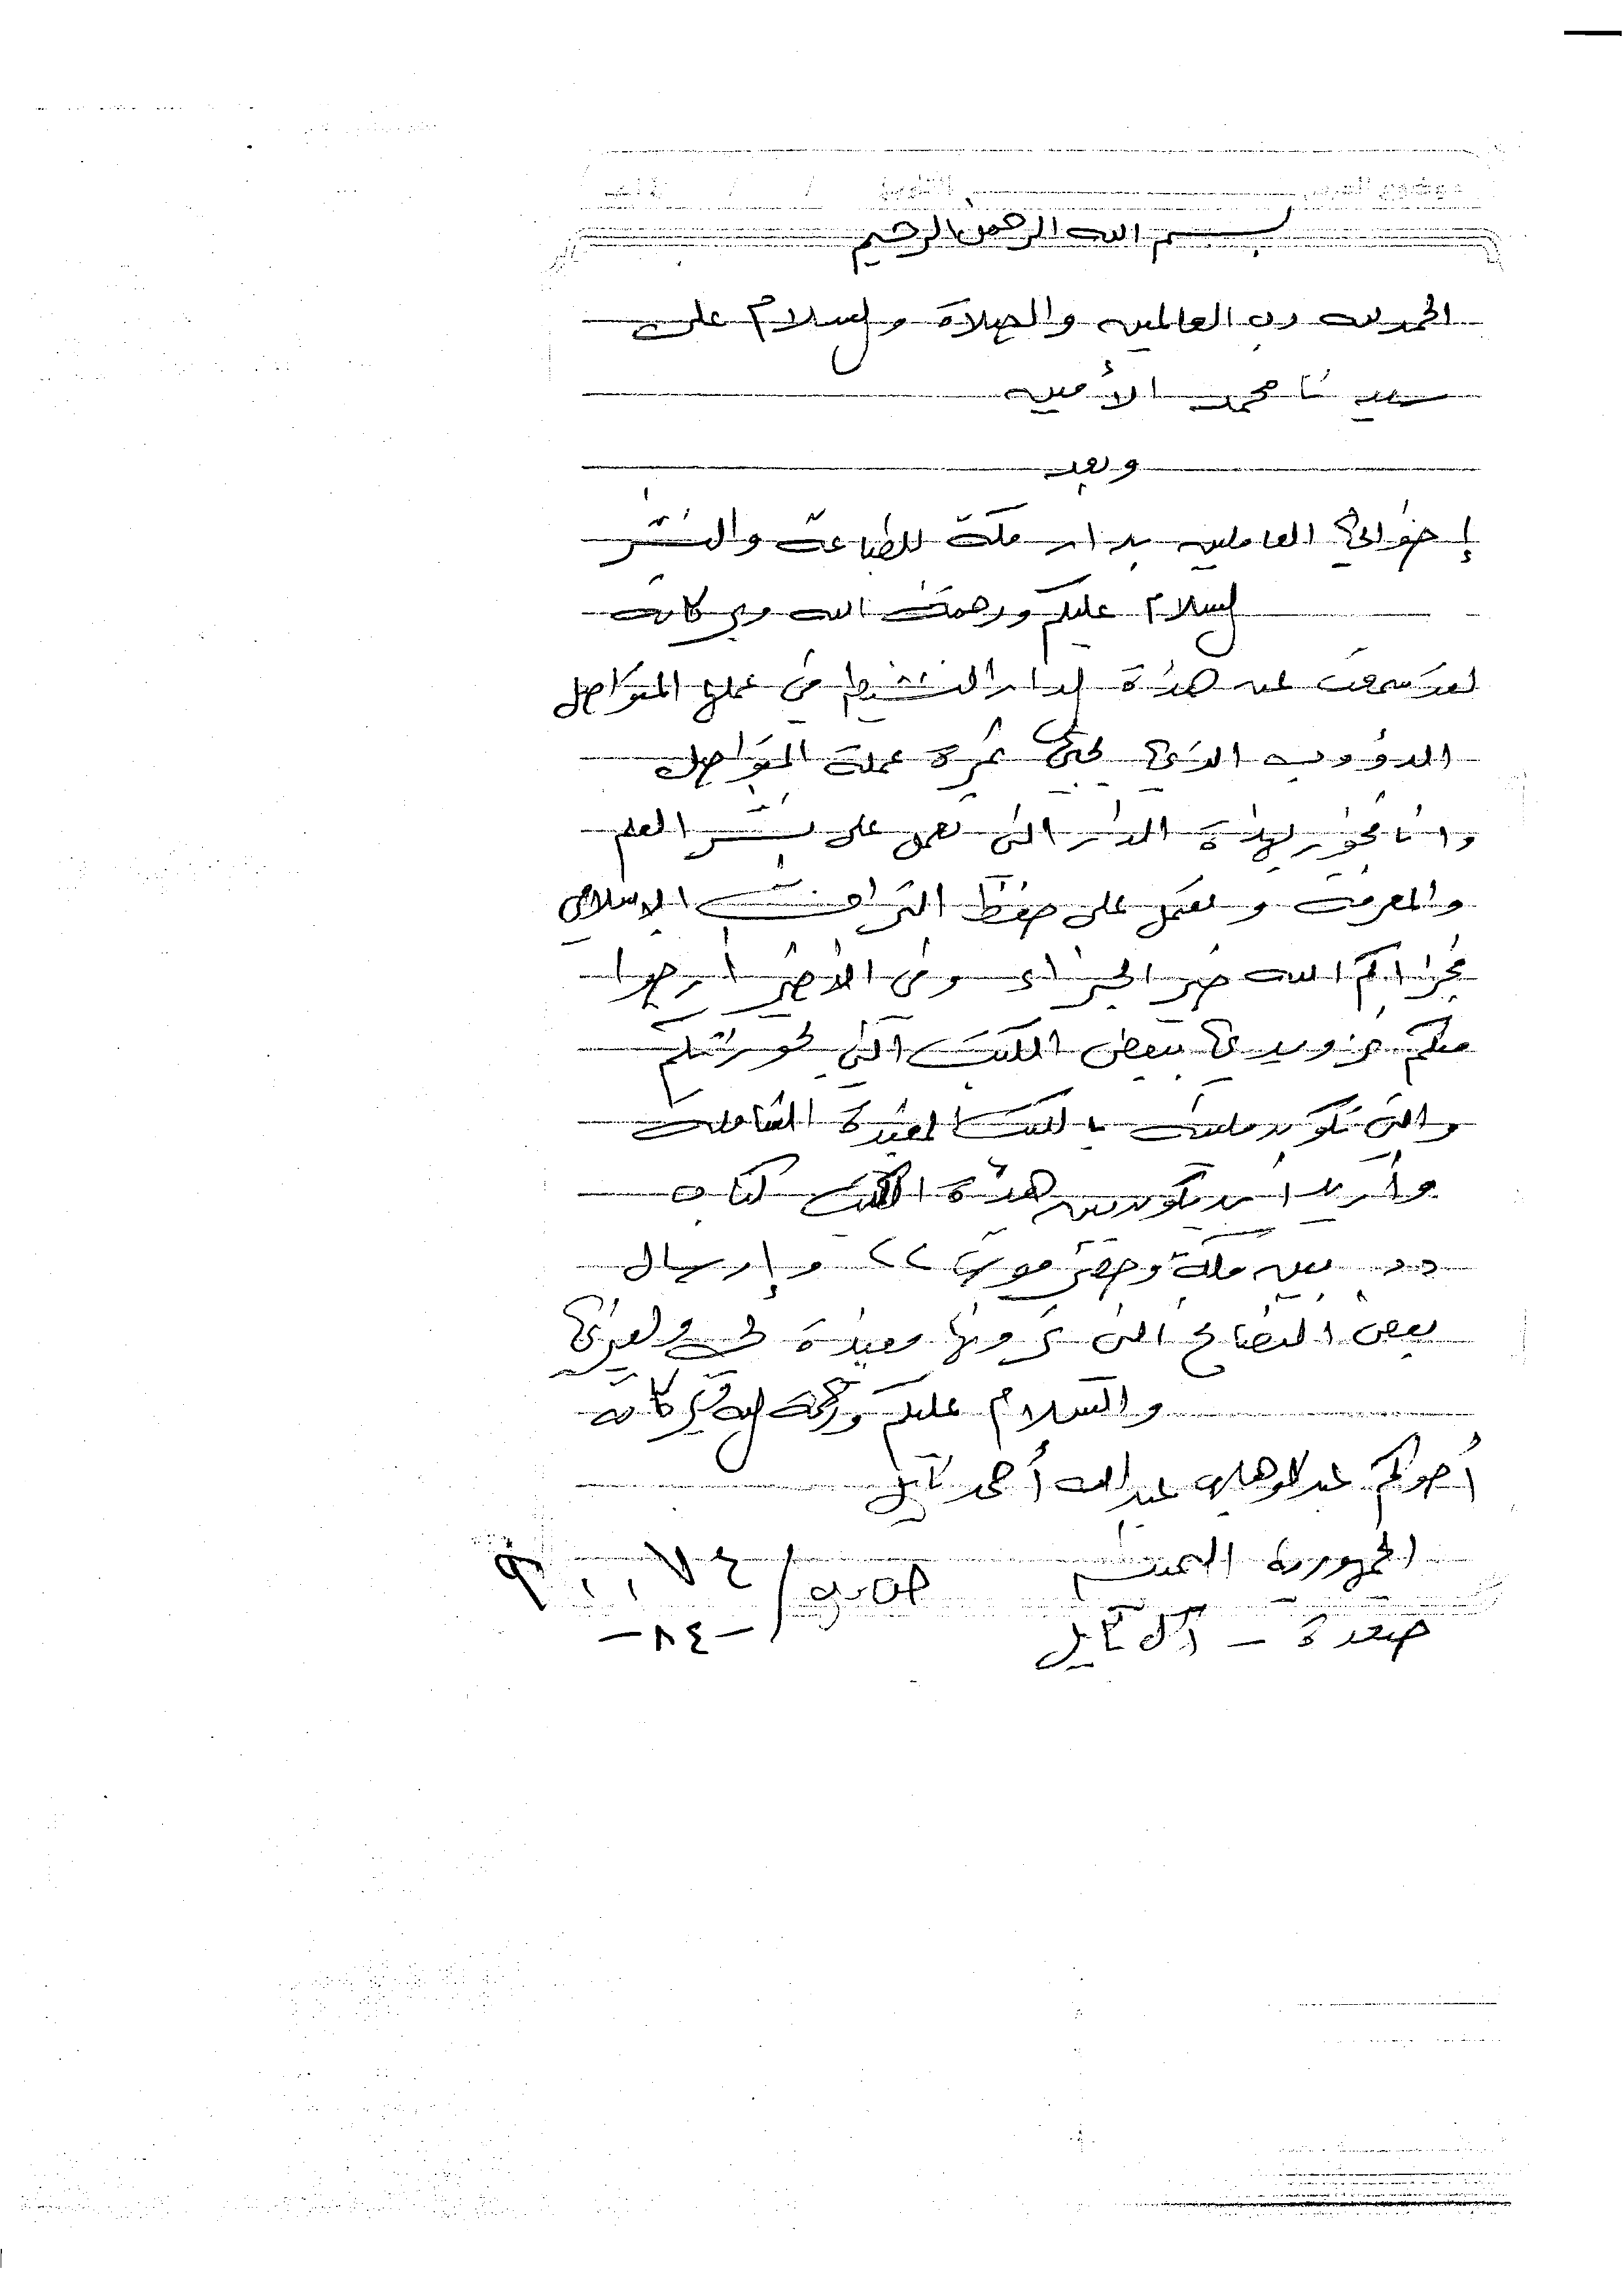 بسم الله الرحمن الرحيم
الحمد لله رب العالمين والصلاة والسلام على
سيدنا محمد الأمين
وبعد
إخواني العاملين بدار مكة للطباعة والنشر
السلام عليكم ورحمة الله وبركاته
لقد سمعت عن هذه الدار النشيط في عملها المتواصل
الدؤوب الذي يجني ثمرة عملة المتواصل
وانا فخور بهذة الدار التي تعمل على نشر العلم
والمعرفة وتعمل على حفظ التراث الإسلامي
فجزاكم الله خير الجزاء وفي الأخير ارجوا
منكم تزويدي ببعض الكتب التي بحوزتكم
والتي تكون مليئة بالكتب المفيدة الشاملة
وأريد ان يكون بين هذة الكتب كتاب
(( بين مكة وحضرموت )) وإرسال
بعض النصائح التي ترونها مفيدة لي ولغيري
والسلام عليكم ورحمة الله وبركاته
أخوكم عبدالوهاب عبدالله أحمد نايل
الجمهورية اليمنية
صعدة - آل نايل
ص.ب/
-٨٤-